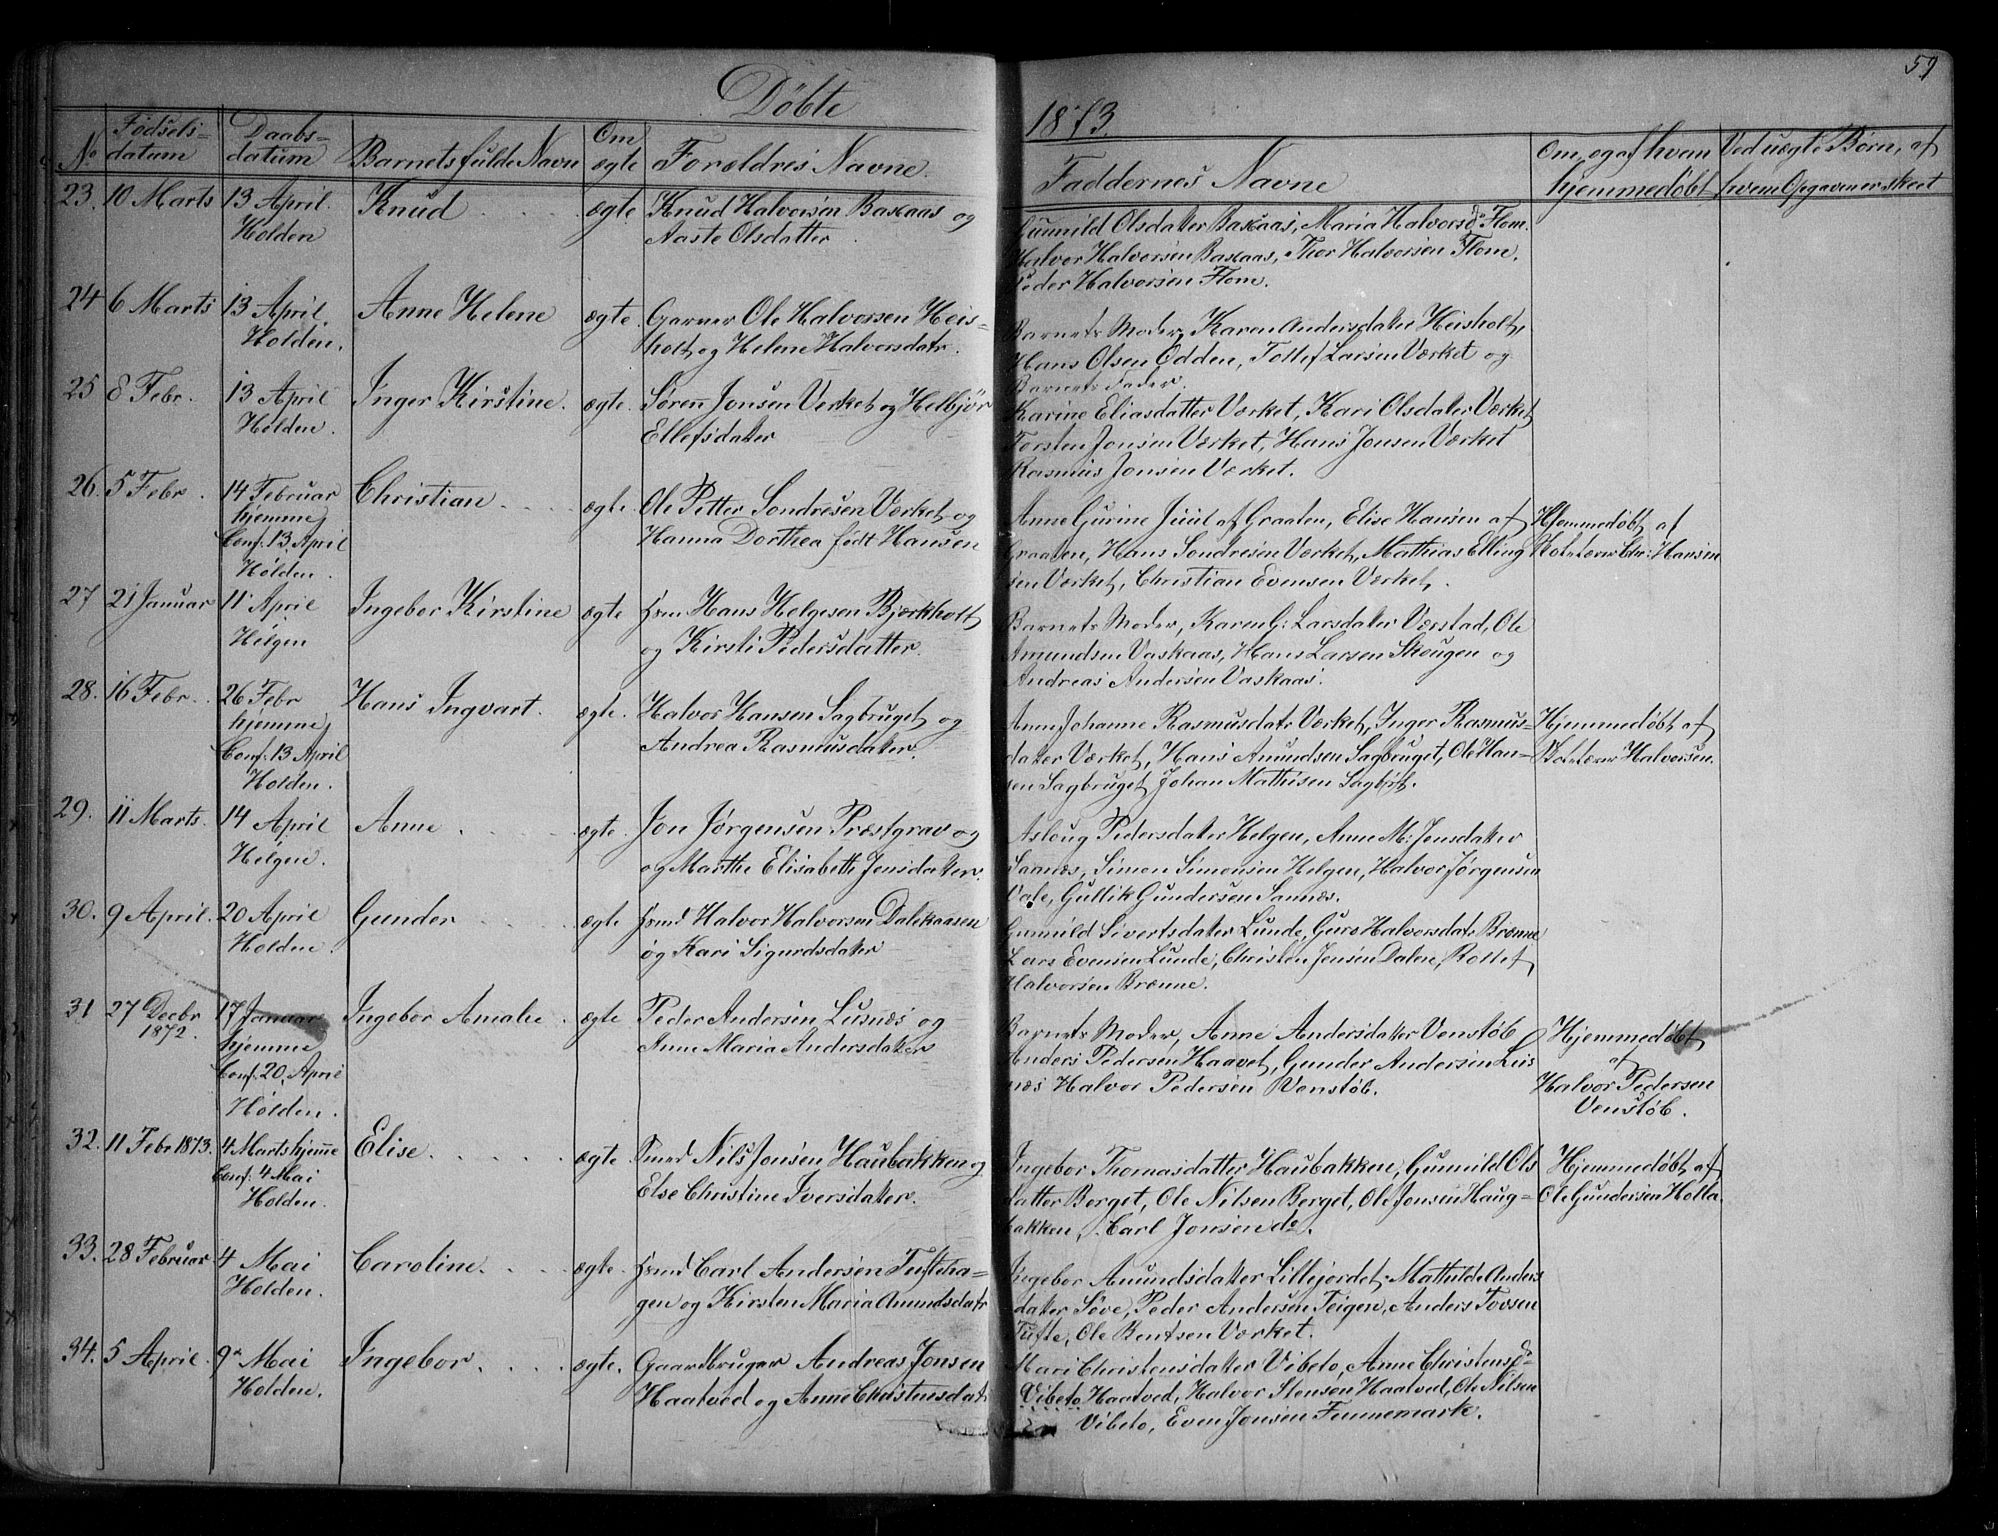 59
Døbte
1873.
No
Fødsels-
datum
Daabs-
datum
Barnets fulde Navn
Om
ægte
Forældres Navne.
Faddernes Navne
Om og af hvem
hjemmedøbt
Ved uægte Børn, af
hvem Opgaven er skeet
23. 10 Marts
13 April
Holden
Knud
ægte
Knud Halvorsen Baskaas og
Aaste Olsdatter
Gunnild Olsdatter Baskaas, Maria Halvorsdr Flom.
Halvor Halvorsen Baskaas, Thor Halvorsen Flom,
Peder Halvorsen Flom.
24 6 Marts
13 April
Holden.
Anne Helene
ægte.
Garver Ole Halvorsen Heis-
holt og Helene Halvorsdatr.
Barnets Moder, Karen Andersdater Heisholt,
Hans Olsen Odden, Tollef Larsen Værket og
Barnets Fader.
25 8 Febr.
13 April
Holden.
Inger Kirstine.
ægte.
Søren Jonsen Verket og Helbjør
Ellefsdater
Karine Eliasdatter Værket, Kari Olsdater Værket
Torsten Jonsen Værket, Hans Jonsen Værket
Rasmus Jonsen Værket.
26. 5 Febr.
14 Februar
hjemme,
Conf: 13 April
Holden.
Christian
ægte.
Ole Petter Sondresen Værket og
Hanna Dorthea født Hansen
Anne Gurine Juul af Graaten, Elise Hansen af
Graaten, Hans Sondresen Værket, Mathias Elling
sen Værket, Christian Evensen Værket,
Hjemmedøbt af
Kirkelærer Chr: Hansen
27 21 Januar
11 April
Helgen
Ingebor Kirstine
ægte
Hmd Hans Helgesen Bjerkholt
og Kirsti Pedersdatter.
Barnets Moder, Karen G: Larsdater Værstad, Ole
Amundsen Vaskaas, Hans Larsen Skougen og
Andreas Andersen Vaskaas.
28. 16 Febr.
26 Febr
hjemme,
Conf: 13 April
Holden.
Hans Ingvart.
ægte.
Halvor Hansen Sagbruget og
Andrea Rasmusdater.
Ann Johanne Rasmusdatr Værket, Inger Rasmus-
dater Værket, Hans Amundsen Sagbruget, Ole Han-
sen Sagbruget Johan Mathisen Sagbrt.
Hjemmedøbt af
Halvorsen
29. 11 Marts.
14 April
Helgen.
Anne
ægte.
Jon Jørgensen Præstgrav og
og Marthe Elisabeth Jensdater.
Asloug Pedersdater Helgen, Anne M: Jensdater
Sannæs, Simon Simonsen Helgen, Halvor Jørgensen
Vale, Gullik Gundersen Sannæs.
30. 9 April.
20 April
Holden.
Gunder
ægte
Hmd Halvor Halvorsen Dalskaasen
og Kari Sigurdsdater
Gunnild Sivertsdater Lunde, Guro Halvorsdatr Brænne
Lars Evensen Lunde, Christen Jensen Dalene, Rollef
Halvorsen Brænne.
31 27 Decbr
1872.
17 Januar
hjemme
Conf: 20. April
Holden.
Ingebor Amalie
ægte
Peder Andersen Lusnæs og
Anne Maria Andersdater
Barnets Moder, Anne Andersdater Venstøb
Anders Pedersen Haavet, Gunder Andersen Lus
næs Halvor Pedersen Venstøb.
Hjemmedøbt
af
Halvor Pedersen
Venstøb.
32. 11 Febr 1873.
4 Marts hjemme
Conf: 4 Mai
Holden.
Elise
ægte
Smed Nils Jonsen Haubakken og
Else Christine Iversdater.
Ingebor Thomasdatter Haubakken, Gunnild Ols
datter Berget, Ole Nilsen Berget, Ole Jonsen Haug-
bakken, Carl Jonsen do.
Hjemmedøbt af
Ole Gundersen Holla
33. 28 Februar
4 Mai
Holden.
Caroline.
ægte.
Hmd Carl Andersen Tufteha-
gen og Kirsten Maria Amundsdatr
Ingebor Amundsdatter Lillejordet. Mathilde Anders
dater Søve, Peder Andersen Teigen, Anders Tovsen
Tufte, Ole Bentsen Værket.
34. 5 April.
9 Mai
Holden.
Ingebor
ægte.
Gaardbruger Andreas Jonsen
Haatved og Anne Christensdatr
Mari Christensdater Vibeto, Anne Christensdr
Vibeto Haatved, Halvor Stensen Haatved, Ole Nilsen
Vibeto, Even Jonsen Finnemark.